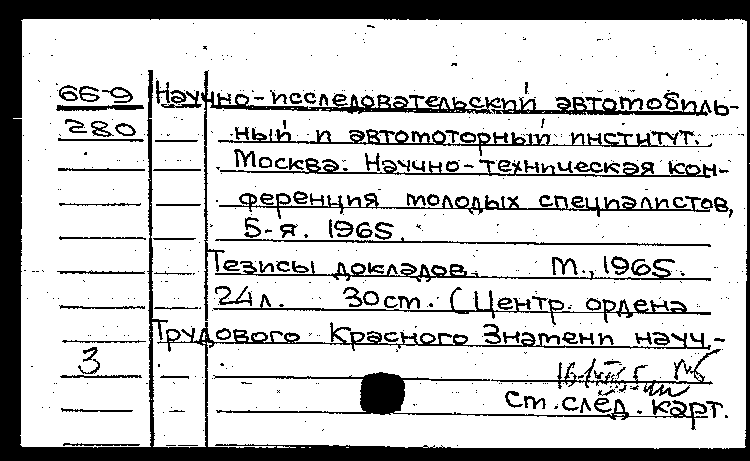 66-9 Научно-исследовательский автомобиль-
280 ный и автомоторный институт.
Москва. Научно-техническая кон-
ференция молодых специалистов,
5-я. 1965.
Тезисы докладов. М., 1965.
24л. 30см. (Центр. ордена
Трудового Красного Знамени науч.-
3
см. след. карт.